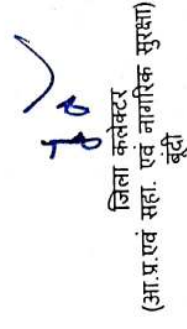 जिला कलेक्टर
(आ.प्र.एवं सहा. एवं नागरिक सुरक्षा)
बूंदी